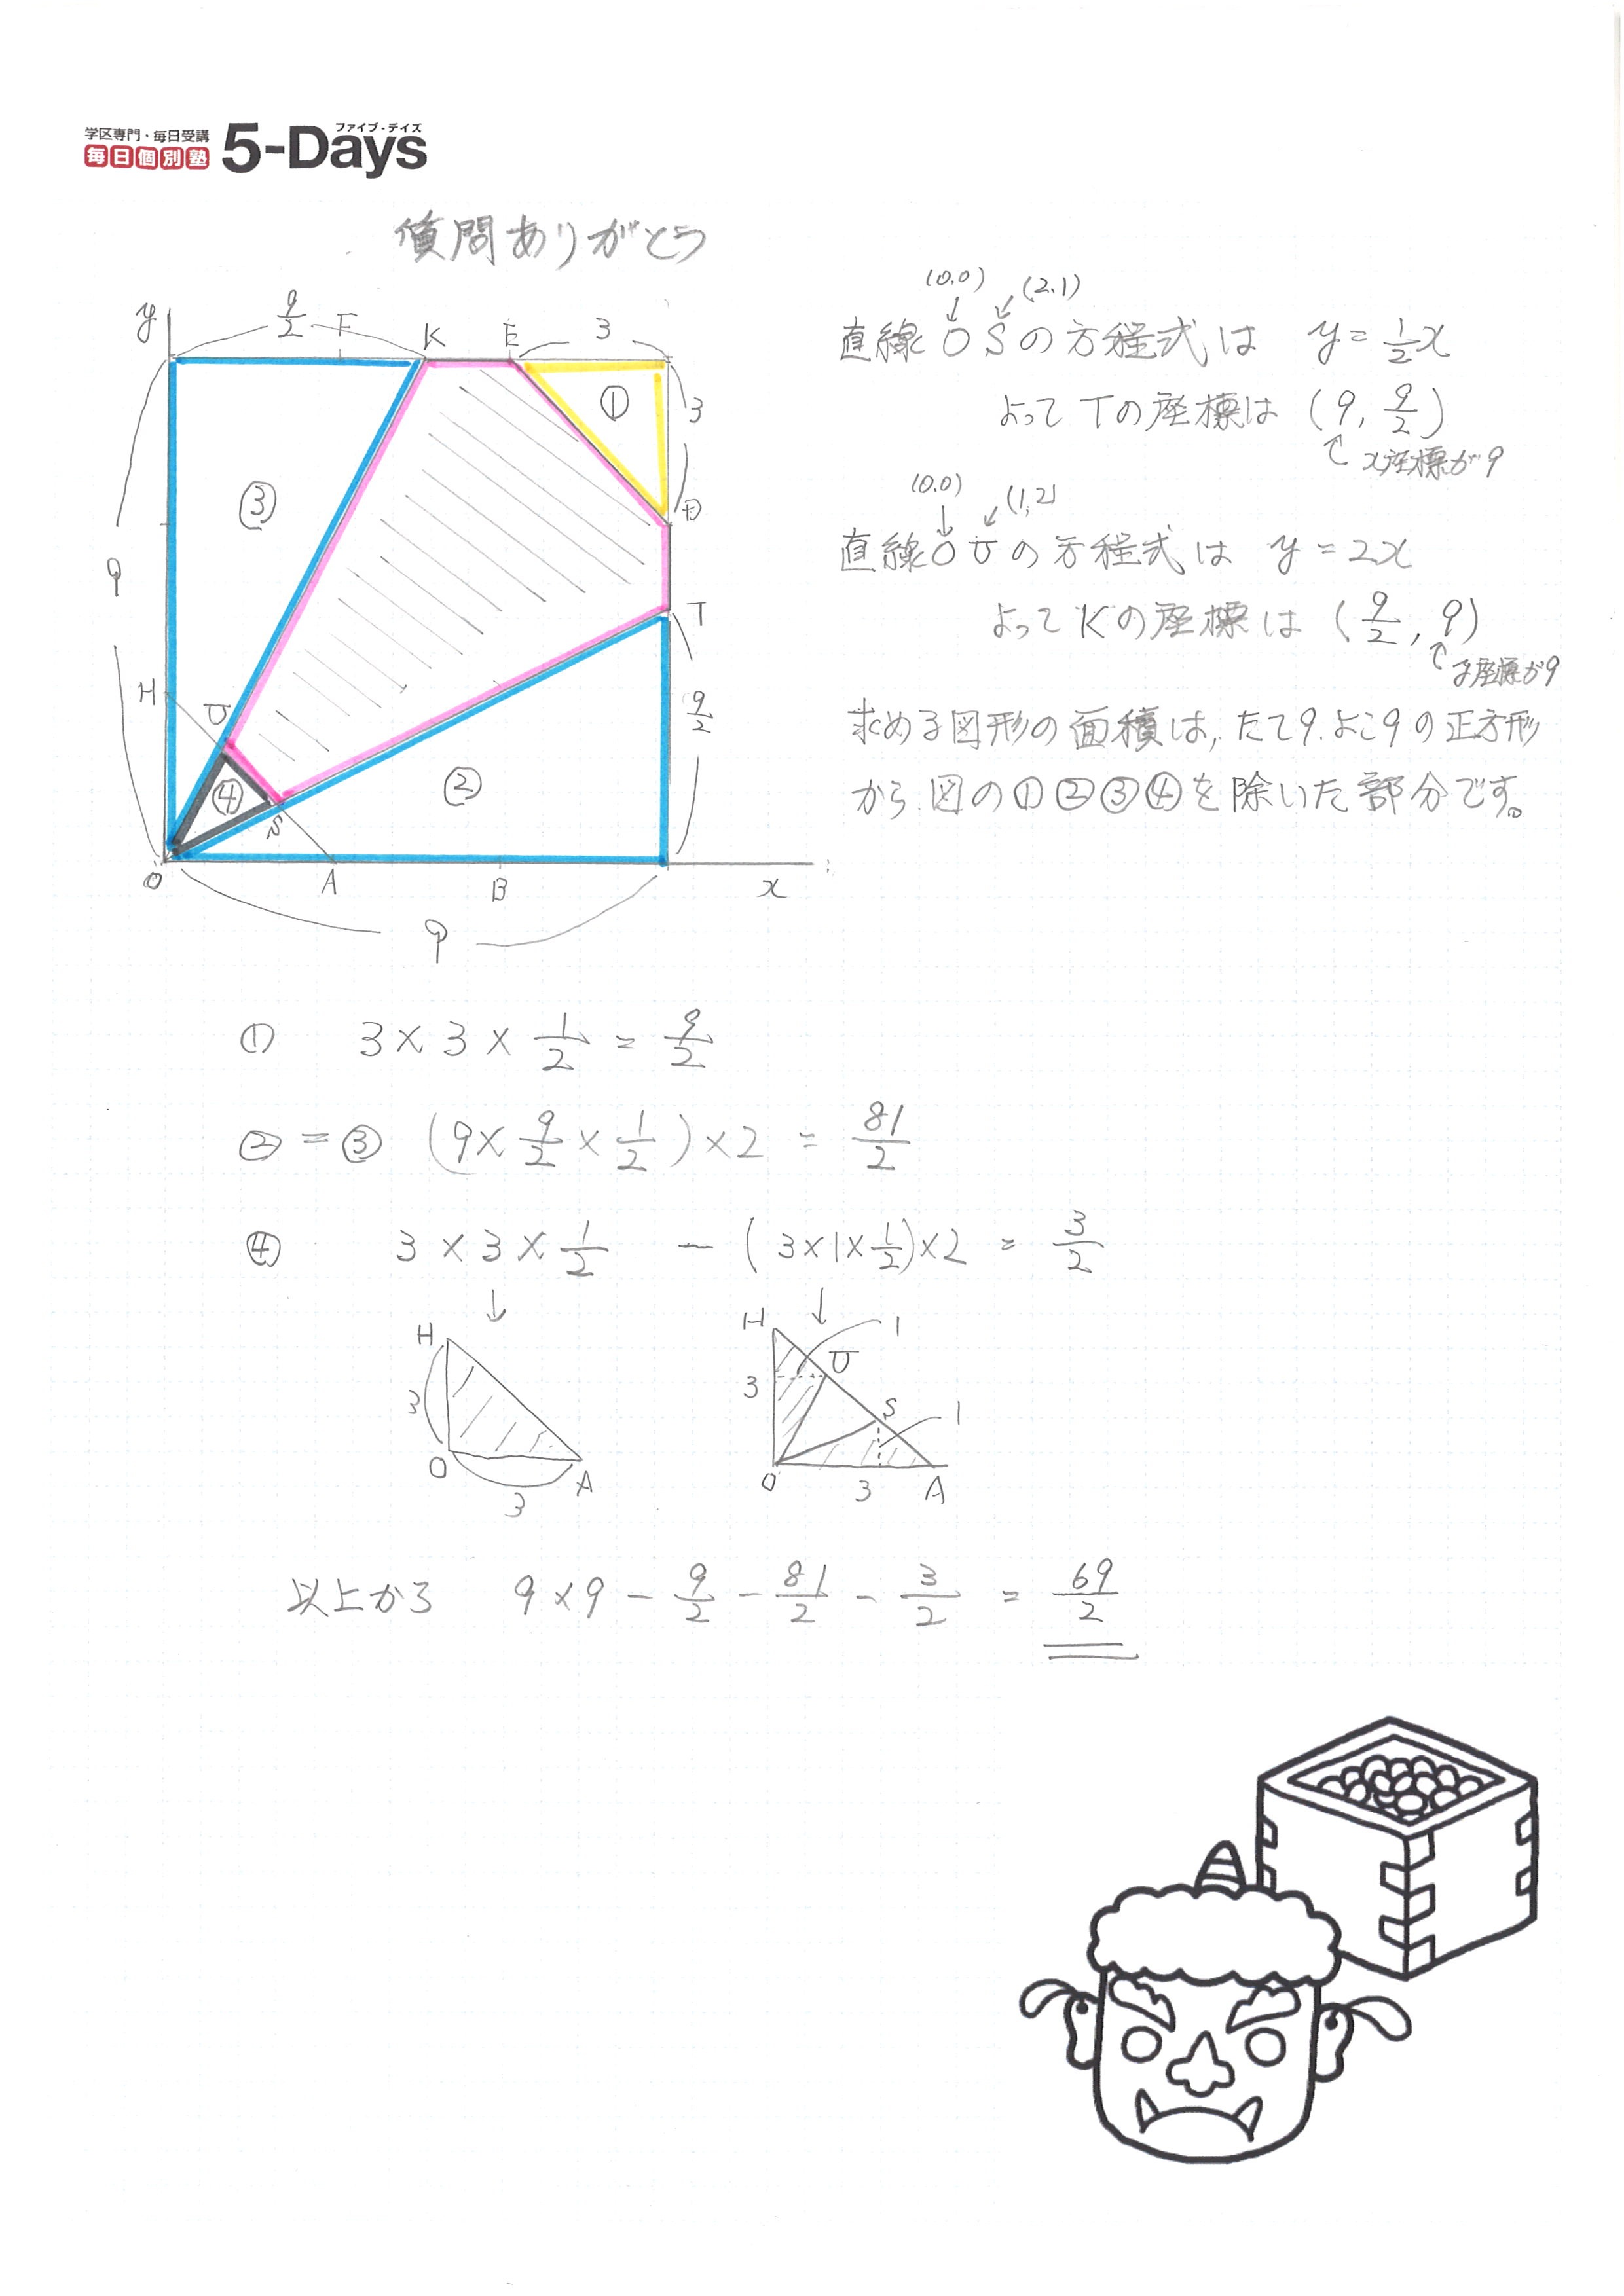 学区専門・毎日受講
毎日個別塾 5-Days
ファイブ・デイズ
質問ありがとう
y 9/2 F K E 3
① 3
③
D
9
T
H U
9/2
④ ②
S
O A B x
9
(0,0) (2,1)
直線OSの方程式は y=1/2x
よってTの座標は (9, 9/2)
x座標が9
(0,0) (1,2)
直線OUの方程式は y=2x
よってKの座標は (9/2, 9)
y座標が9
求める図形の面積は,たて9.よこ9の正方形
から.図の①②③④を除いた部分です。
① 3×3×1/2=9/2
②=③ (9×9/2×1/2)×2=81/2
④ 3×3×1/2 -(3×1×1/2)×2=3/2
H
3
O A
3
H 1
U
3
S 1
O 3 A
以上から 9×9-9/2-81/2-3/2=69/2